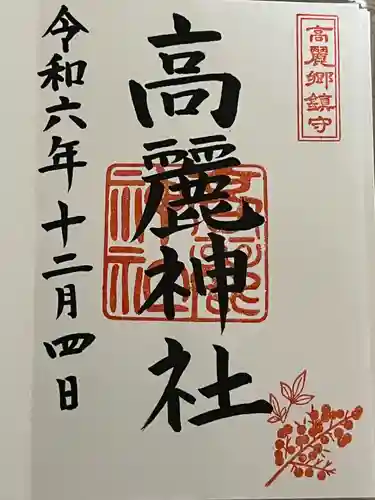 高麗郷鎮守
高麗神社
令和六年十二月四日
高麗神社